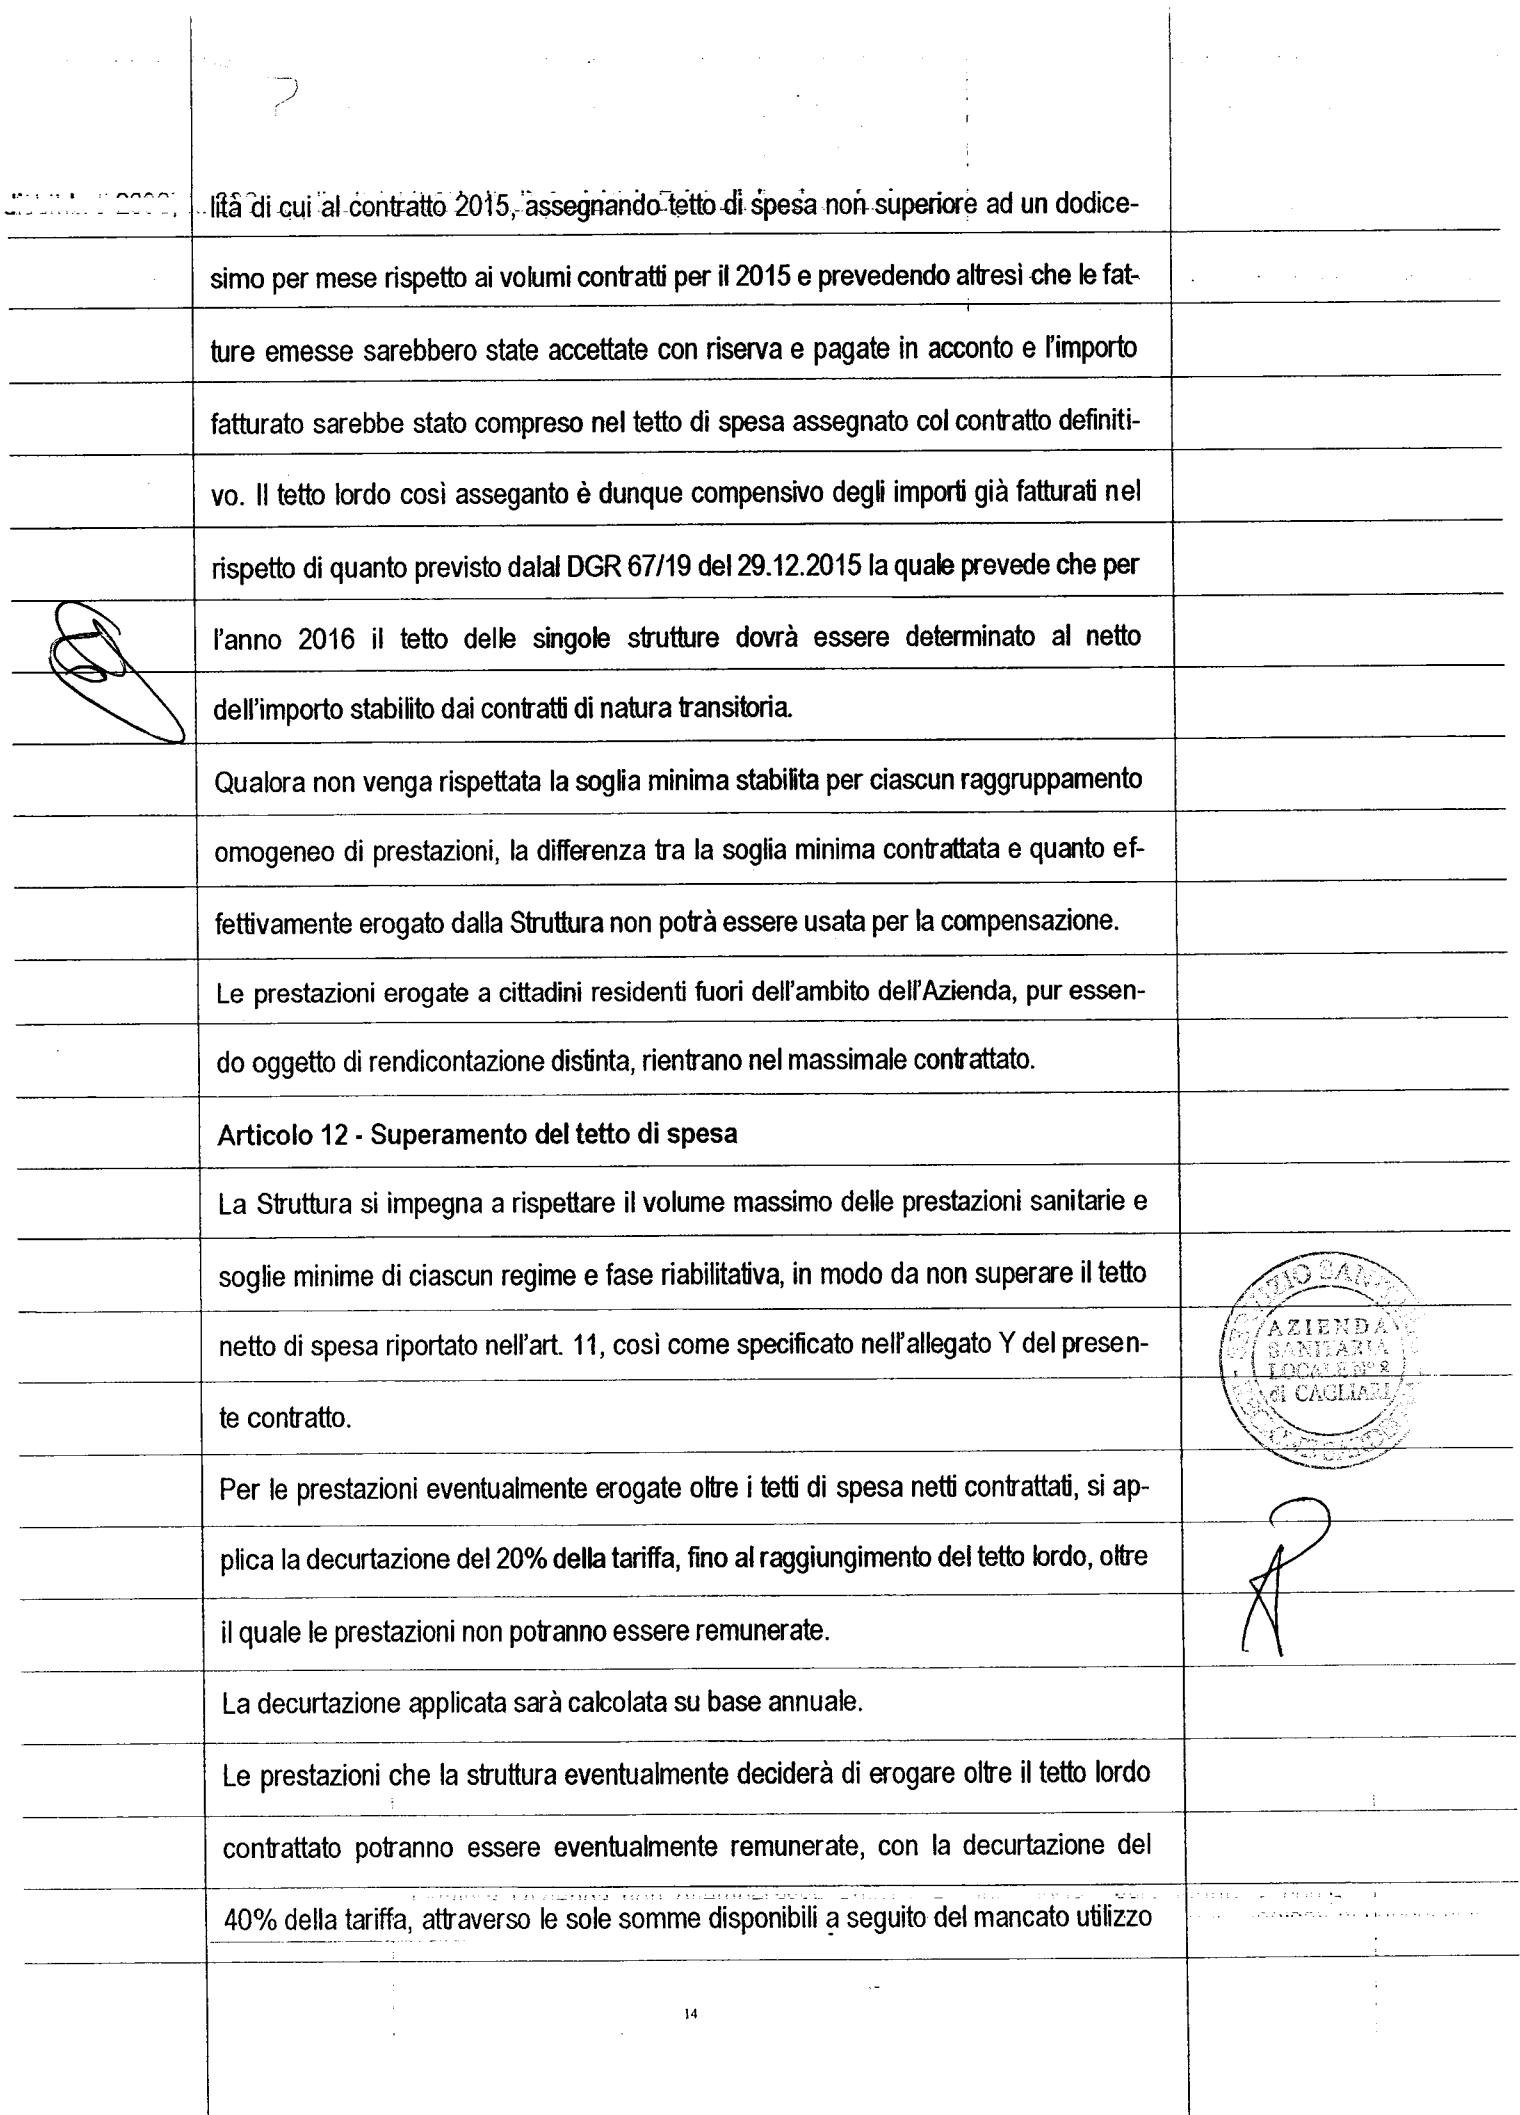 lità di cui al contratto 2015, assegnando tetto di spesa non superiore ad un dodice-
simo per mese rispetto ai volumi contratti per il 2015 e prevedendo altresì che le fat-
ture emesse sarebbero state accettate con riserva e pagate in acconto e l'importo
fatturato sarebbe stato compreso nel tetto di spesa assegnato col contratto definiti-
vo. Il tetto lordo così asseganto è dunque compensivo degli importi già fatturati nel
rispetto di quanto previsto dalal DGR 67/19 del 29.12.2015 la quale prevede che per
l'anno 2016 il tetto delle singole strutture dovrà essere determinato al netto
dell'importo stabilito dai contratti di natura transitoria.
Qualora non venga rispettata la soglia minima stabilita per ciascun raggruppamento
omogeneo di prestazioni, la differenza tra la soglia minima contrattata e quanto ef-
fettivamente erogato dalla Struttura non potrà essere usata per la compensazione.
Le prestazioni erogate a cittadini residenti fuori dell'ambito dell'Azienda, pur essen-
do oggetto di rendicontazione distinta, rientrano nel massimale contrattato.
Articolo 12 - Superamento del tetto di spesa
La Struttura si impegna a rispettare il volume massimo delle prestazioni sanitarie e
soglie minime di ciascun regime e fase riabilitativa, in modo da non superare il tetto
netto di spesa riportato nell'art. 11, così come specificato nell'allegato Y del presen-
te contratto.
AZIENDA
SANITARIA
LOCALE N° 8
di CAGLIARI
Per le prestazioni eventualmente erogate oltre i tetti di spesa netti contrattati, si ap-
plica la decurtazione del 20% della tariffa, fino al raggiungimento del tetto lordo, oltre
il quale le prestazioni non potranno essere remunerate.
La decurtazione applicata sarà calcolata su base annuale.
Le prestazioni che la struttura eventualmente deciderà di erogare oltre il tetto lordo
contrattato potranno essere eventualmente remunerate, con la decurtazione del
40% della tariffa, attraverso le sole somme disponibili a seguito del mancato utilizzo
14